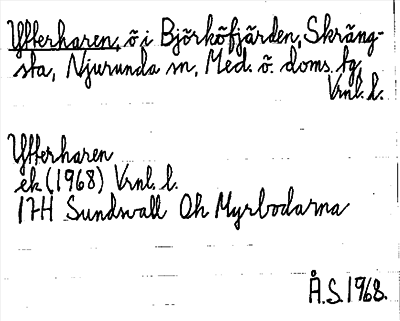 Ytterharen, ö i Björköfjärden, Skräng-
sta, Njurunda sn, Med. ö. doms. tg,
Vrnl. l.
Ytterharen
ek (1968) Vrnl. l.
17H Sundsvall Öh Myrbodarna
Å.S. 1968.